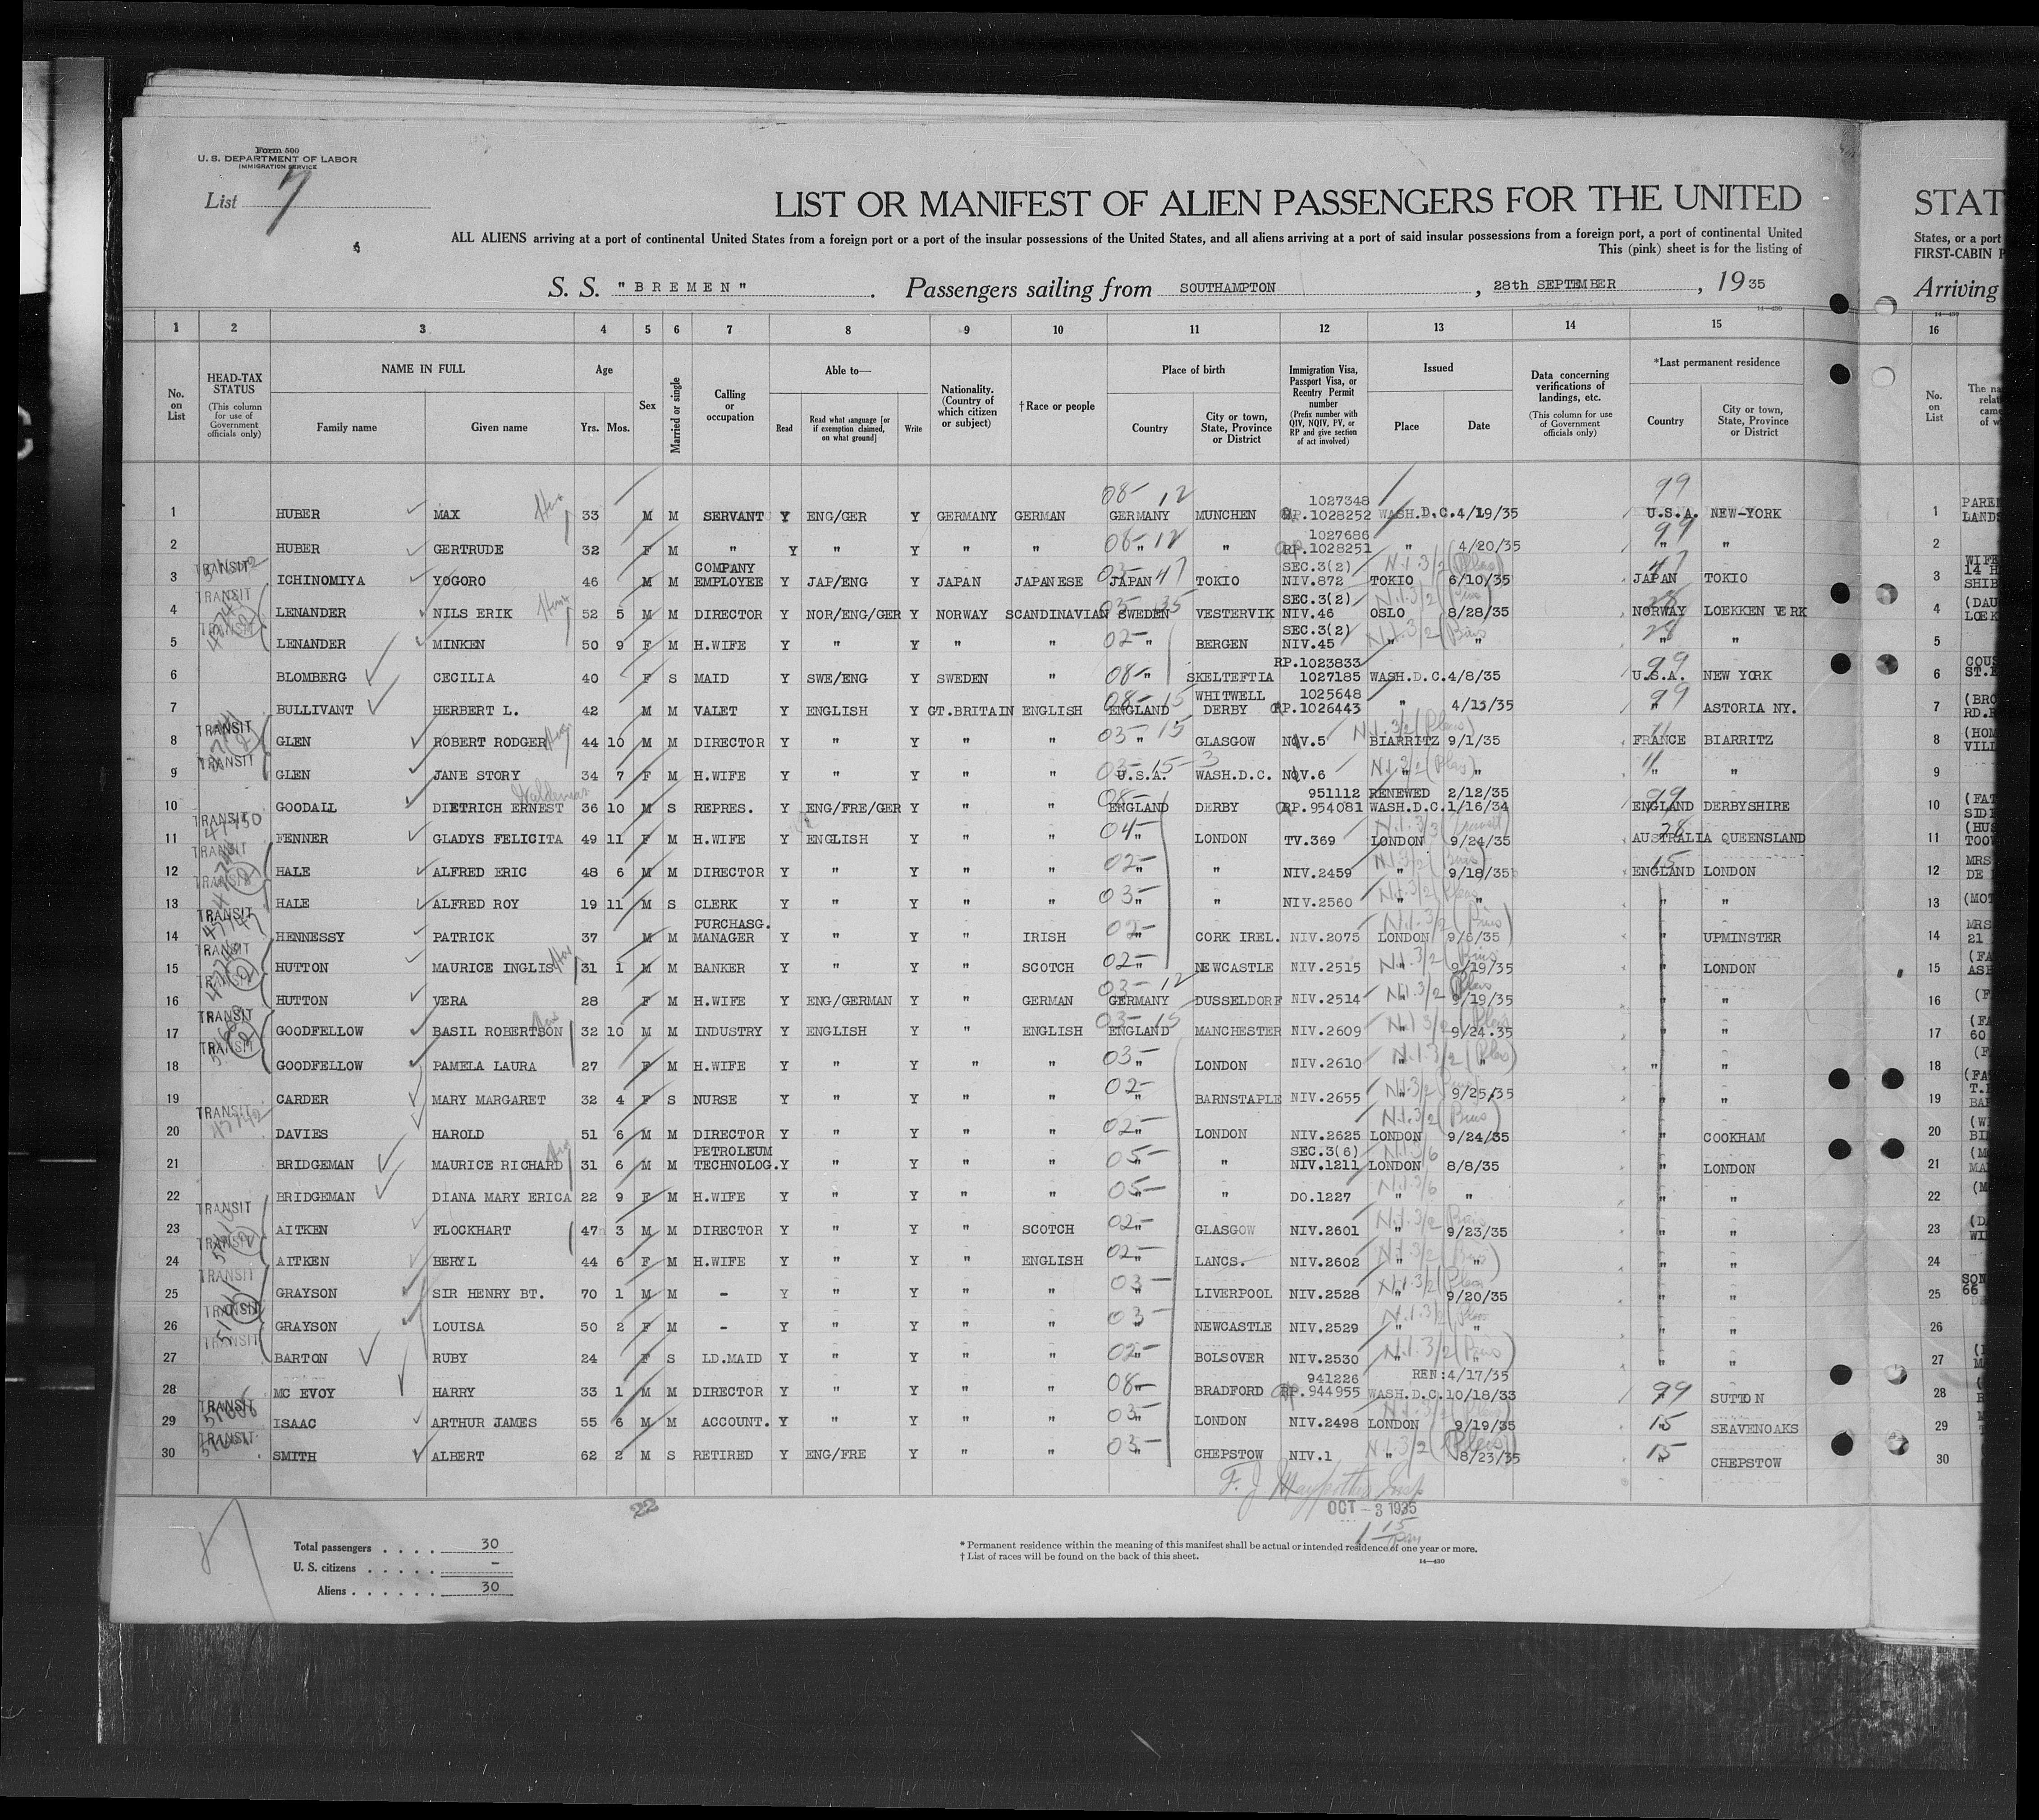 Form 500
U. S. DEPARTMENT OF LABOR
IMMIGRATION SERVICE
List 7
LIST OR MANIFEST OF ALIEN PASSENGERS FOR THE UNITED
STAT
ALL ALIENS arriving at a port of continental United States from a foreign port or a port of the insular possessions of the United States, and all aliens arriving at a port of said insular possessions from a foreign port, a port of continental United
States, or a port
This (pink) sheet is for the listing of
FIRST-CABIN P
S. S. "BREMEN". Passengers sailing from SOUTHAMPTON, 28th SEPTEMBER, 1935
Arriving
1 2 3 4 5 6 7 8 9 10 11 12 13 14 15 16
No. on List
HEAD-TAX STATUS (This column for use of Government officials only)
NAME IN FULL
Family name Given name
Age
Yrs. Mos.
Sex
Married or single
Calling or occupation
Able to—
Read Read what language [or if exemption claimed, on what ground] Write
Nationality. (Country of which citizen or subject)
†Race or people
Place of birth
Country City or town, State, Province or District
Immigration Visa, Passport Visa, or Reentry Permit number (Prefix number with QIV, NQIV, PV, or RP and give section of act involved)
Issued
Place Date
Data concerning verifications of landings, etc. (This column for use of Government officials only)
*Last permanent residence
Country City or town, State, Province or District
No. on List
08- 12 1027348 99
1 HUBER MAX 33 M M SERVANT Y ENG/GER Y GERMANY GERMAN GERMANY MUNCHEN RP.1028252 WASH.D.C. 4/19/35 U.S.A. NEW-YORK 1
08-12 1027686 99
2 HUBER GERTRUDE 32 F M " Y " Y " " " " RP.1028251 " 4/20/35 " " 2
TRANSIT COMPANY SEC.3(2)
3 ICHINOMIYA YOGORO 46 M M EMPLOYEE Y JAP/ENG Y JAPAN JAPANESE JAPAN TOKIO NIV.872 TOKIO 6/10/35 JAPAN TOKIO 3
TRANSIT SEC.3(2)
4 LENANDER NILS ERIK 52 5 M M DIRECTOR Y NOR/ENG/GER Y NORWAY SCANDINAVIAN SWEDEN VESTERVIK NIV.46 OSLO 8/28/35 NORWAY LOEKKEN VERK 4
TRANSIT SEC.3(2)
5 LENANDER MINKEN 50 9 F M H.WIFE Y " Y " " " BERGEN NIV.45 " " " " 5
RP.1023833
6 BLOMBERG CECILIA 40 F S MAID Y SWE/ENG Y SWEDEN " " SKELTEFTIA 1027185 WASH.D.C. 4/8/35 U.S.A. NEW YORK 6
WHITWELL 1025648
7 BULLIVANT HERBERT L. 42 M M VALET Y ENGLISH Y GT.BRITAIN ENGLISH ENGLAND DERBY RP.1026443 " 4/13/35 " ASTORIA NY. 7
TRANSIT
8 GLEN ROBERT RODGER 44 10 M M DIRECTOR Y " Y " " " GLASGOW NQV.5 BIARRITZ 9/1/35 FRANCE BIARRITZ 8
TRANSIT
9 GLEN JANE STORY 34 7 F M H.WIFE Y " Y " " U.S.A. WASH.D.C. NQV.6 " " " " 9
Waldemar 951112 RENEWED 2/12/35
10 GOODALL DIETRICH ERNEST 36 10 M S REPRES. Y ENG/FRE/GER Y " " ENGLAND DERBY RP.954081 WASH.D.C. 1/16/34 ENGLAND DERBYSHIRE 10
TRANSIT
11 FENNER GLADYS FELICITA 49 11 F M H.WIFE Y ENGLISH Y " " " LONDON TV.369 LONDON 9/24/35 AUSTRALIA QUEENSLAND 11
TRANSIT
12 HALE ALFRED ERIC 48 6 M M DIRECTOR Y " Y " " " " NIV.2459 " 9/18/35 ENGLAND LONDON 12
TRANSIT
13 HALE ALFRED ROY 19 11 M S CLERK Y " Y " " " " NIV.2560 " " " " 13
TRANSIT PURCHASG.
14 HENNESSY PATRICK 37 M M MANAGER Y " Y " IRISH " CORK IREL. NIV.2075 LONDON 9/6/35 " UPMINSTER 14
TRANSIT
15 HUTTON MAURICE INGLIS 31 1 M M BANKER Y " Y " SCOTCH " NEWCASTLE NIV.2515 " 9/19/35 " LONDON 15
TRANSIT
16 HUTTON VERA 28 F M H.WIFE Y ENG/GERMAN Y " GERMAN GERMANY DUSSELDORF NIV.2514 " 9/19/35 " " 16
TRANSIT
17 GOODFELLOW BASIL ROBERTSON 32 10 M M INDUSTRY Y ENGLISH Y " ENGLISH ENGLAND MANCHESTER NIV.2609 " 9/24.35 " " 17
TRANSIT
18 GOODFELLOW PAMELA LAURA 27 F M H.WIFE Y " Y " " " LONDON NIV.2610 " " " " 18
19 CARDER MARY MARGARET 32 4 F S NURSE Y " Y " " " BARNSTAPLE NIV.2655 " 9/25/35 " " 19
TRANSIT
20 DAVIES HAROLD 51 6 M M DIRECTOR Y " Y " " " LONDON NIV.2625 LONDON 9/24/35 " COOKHAM 20
PETROLEUM SEC.3(6)
21 BRIDGEMAN MAURICE RICHARD 31 6 M M TECHNOLOG. Y " Y " " " " NIV.1211 LONDON 8/8/35 " LONDON 21
22 BRIDGEMAN DIANA MARY ERICA 22 9 F M H.WIFE Y " Y " " " " DO.1227 " " " " 22
TRANSIT
23 AITKEN FLOCKHART 47 3 M M DIRECTOR Y " Y " SCOTCH " GLASGOW NIV.2601 " 9/23/35 " " 23
TRANSIT
24 AITKEN BERYL 44 6 F M H.WIFE Y " Y " ENGLISH " LANCS. NIV.2602 " " " " 24
TRANSIT
25 GRAYSON SIR HENRY BT. 70 1 M M - Y " Y " " " LIVERPOOL NIV.2528 " 9/20/35 " " 25
TRANSIT
26 GRAYSON LOUISA 50 2 F M - Y " Y " " " NEWCASTLE NIV.2529 " " " " 26
TRANSIT
27 BARTON RUBY 24 F S LD.MAID Y " Y " " " BOLSOVER NIV.2530 " " " " 27
941226 REN:4/17/35
28 MC EVOY HARRY 33 1 M M DIRECTOR Y " Y " " " BRADFORD RP.944955 WASH.D.C. 10/18/33 99 SUTTON 28
TRANSIT
29 ISAAC ARTHUR JAMES 55 6 M M ACCOUNT. Y " Y " " " LONDON NIV.2498 LONDON 9/19/35 15 SEAVENOAKS 29
TRANSIT
30 SMITH ALBERT 62 2 M S RETIRED Y ENG/FRE Y " " " CHEPSTOW NIV.1 " 8/23/35 15 CHEPSTOW 30
22
OCT - 3 1935
Total passengers . . . . 30
U. S. citizens . . . . . . -
Aliens . . . . . . . 30
* Permanent residence within the meaning of this manifest shall be actual or intended residence of one year or more.
† List of races will be found on the back of this sheet.
14—430